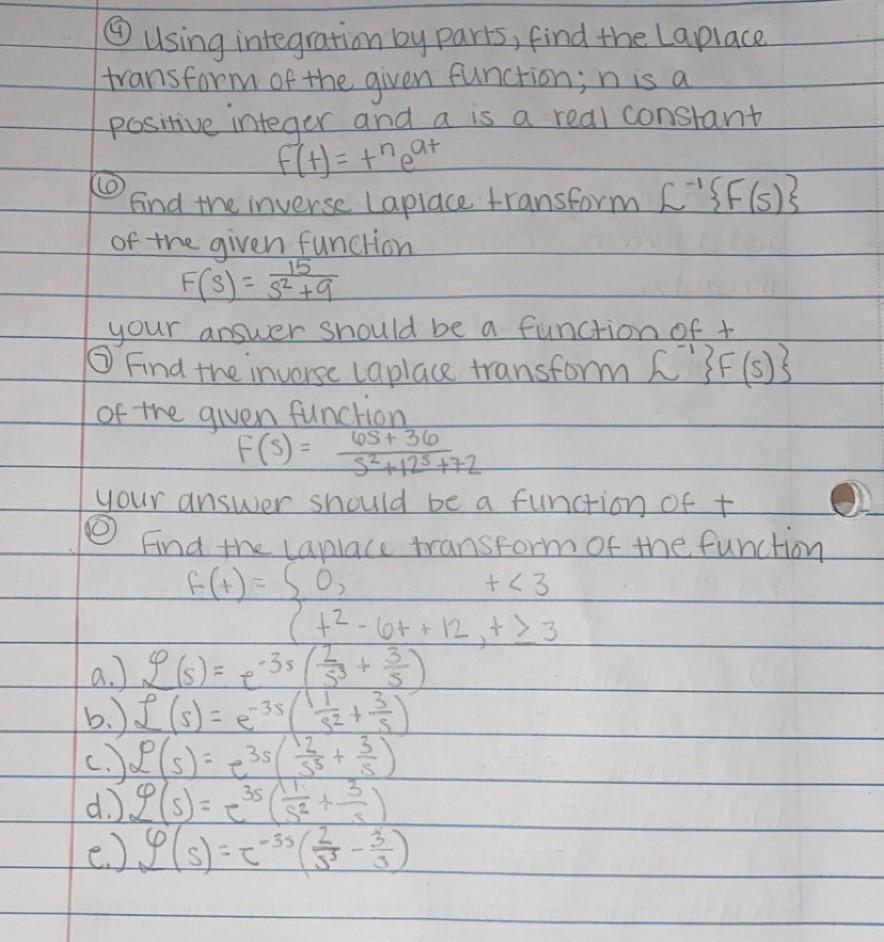 ④ Using integration by parts, find the Laplace
transform of the given function; n is a
positive integer and a is a real constant
f(t) = tⁿeᵃᵗ
⑥ Find the inverse Laplace transform ℒ⁻¹{F(s)}
of the given function
F(s) = 15/(s²+9)
your answer should be a function of t
⑦ Find the inverse Laplace transform ℒ⁻¹{F(s)}
of the given function
F(s) = (6s+36)/(s²+12s+72)
your answer should be a function of t
Find the Laplace transform of the function
f(t) = { 0, t < 3
{ t² - 6t + 12, t ≥ 3
a.) ℒ(s) = e⁻³ˢ(2/s³ + 3/s)
b.) ℒ(s) = e⁻³ˢ(1/s² + 3/s)
c.) ℒ(s) = e³ˢ(2/s³ + 3/s)
d.) ℒ(s) = e³ˢ(1/s² + 3/s)
e.) ℒ(s) = e⁻³ˢ(2/s³ - 3/s)